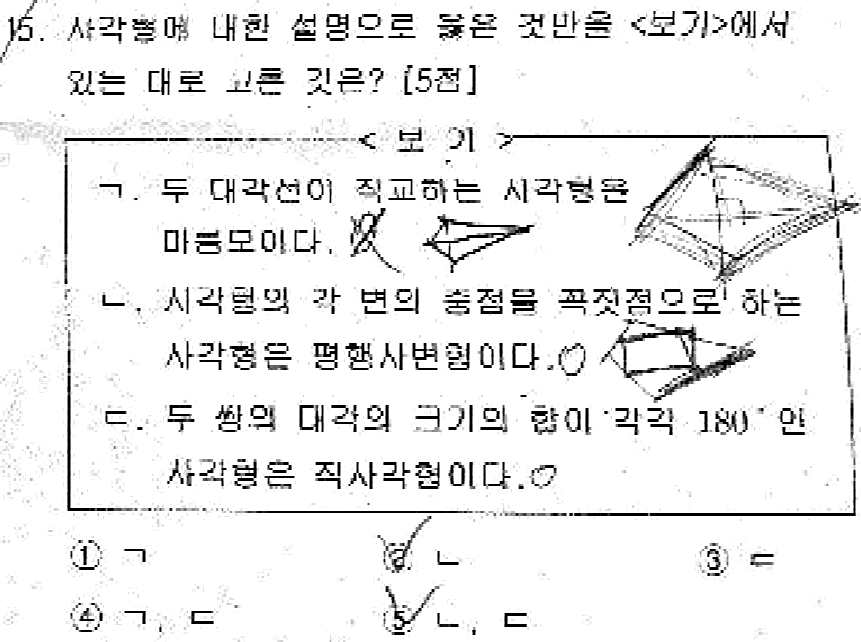 15. 사각형에 대한 설명으로 옳은 것만을 <보기>에서
있는 대로 고른 것은? [5점]
< 보 기 >
ㄱ. 두 대각선이 직교하는 사각형은
마름모이다.
ㄴ. 사각형의 각 변의 중점을 꼭짓점으로 하는
사각형은 평행사변형이다.
ㄷ. 두 쌍의 대각의 크기의 합이 각각 180°인
사각형은 직사각형이다.
① ㄱ ② ㄴ ③ ㄷ
④ ㄱ, ㄷ ⑤ ㄴ, ㄷ